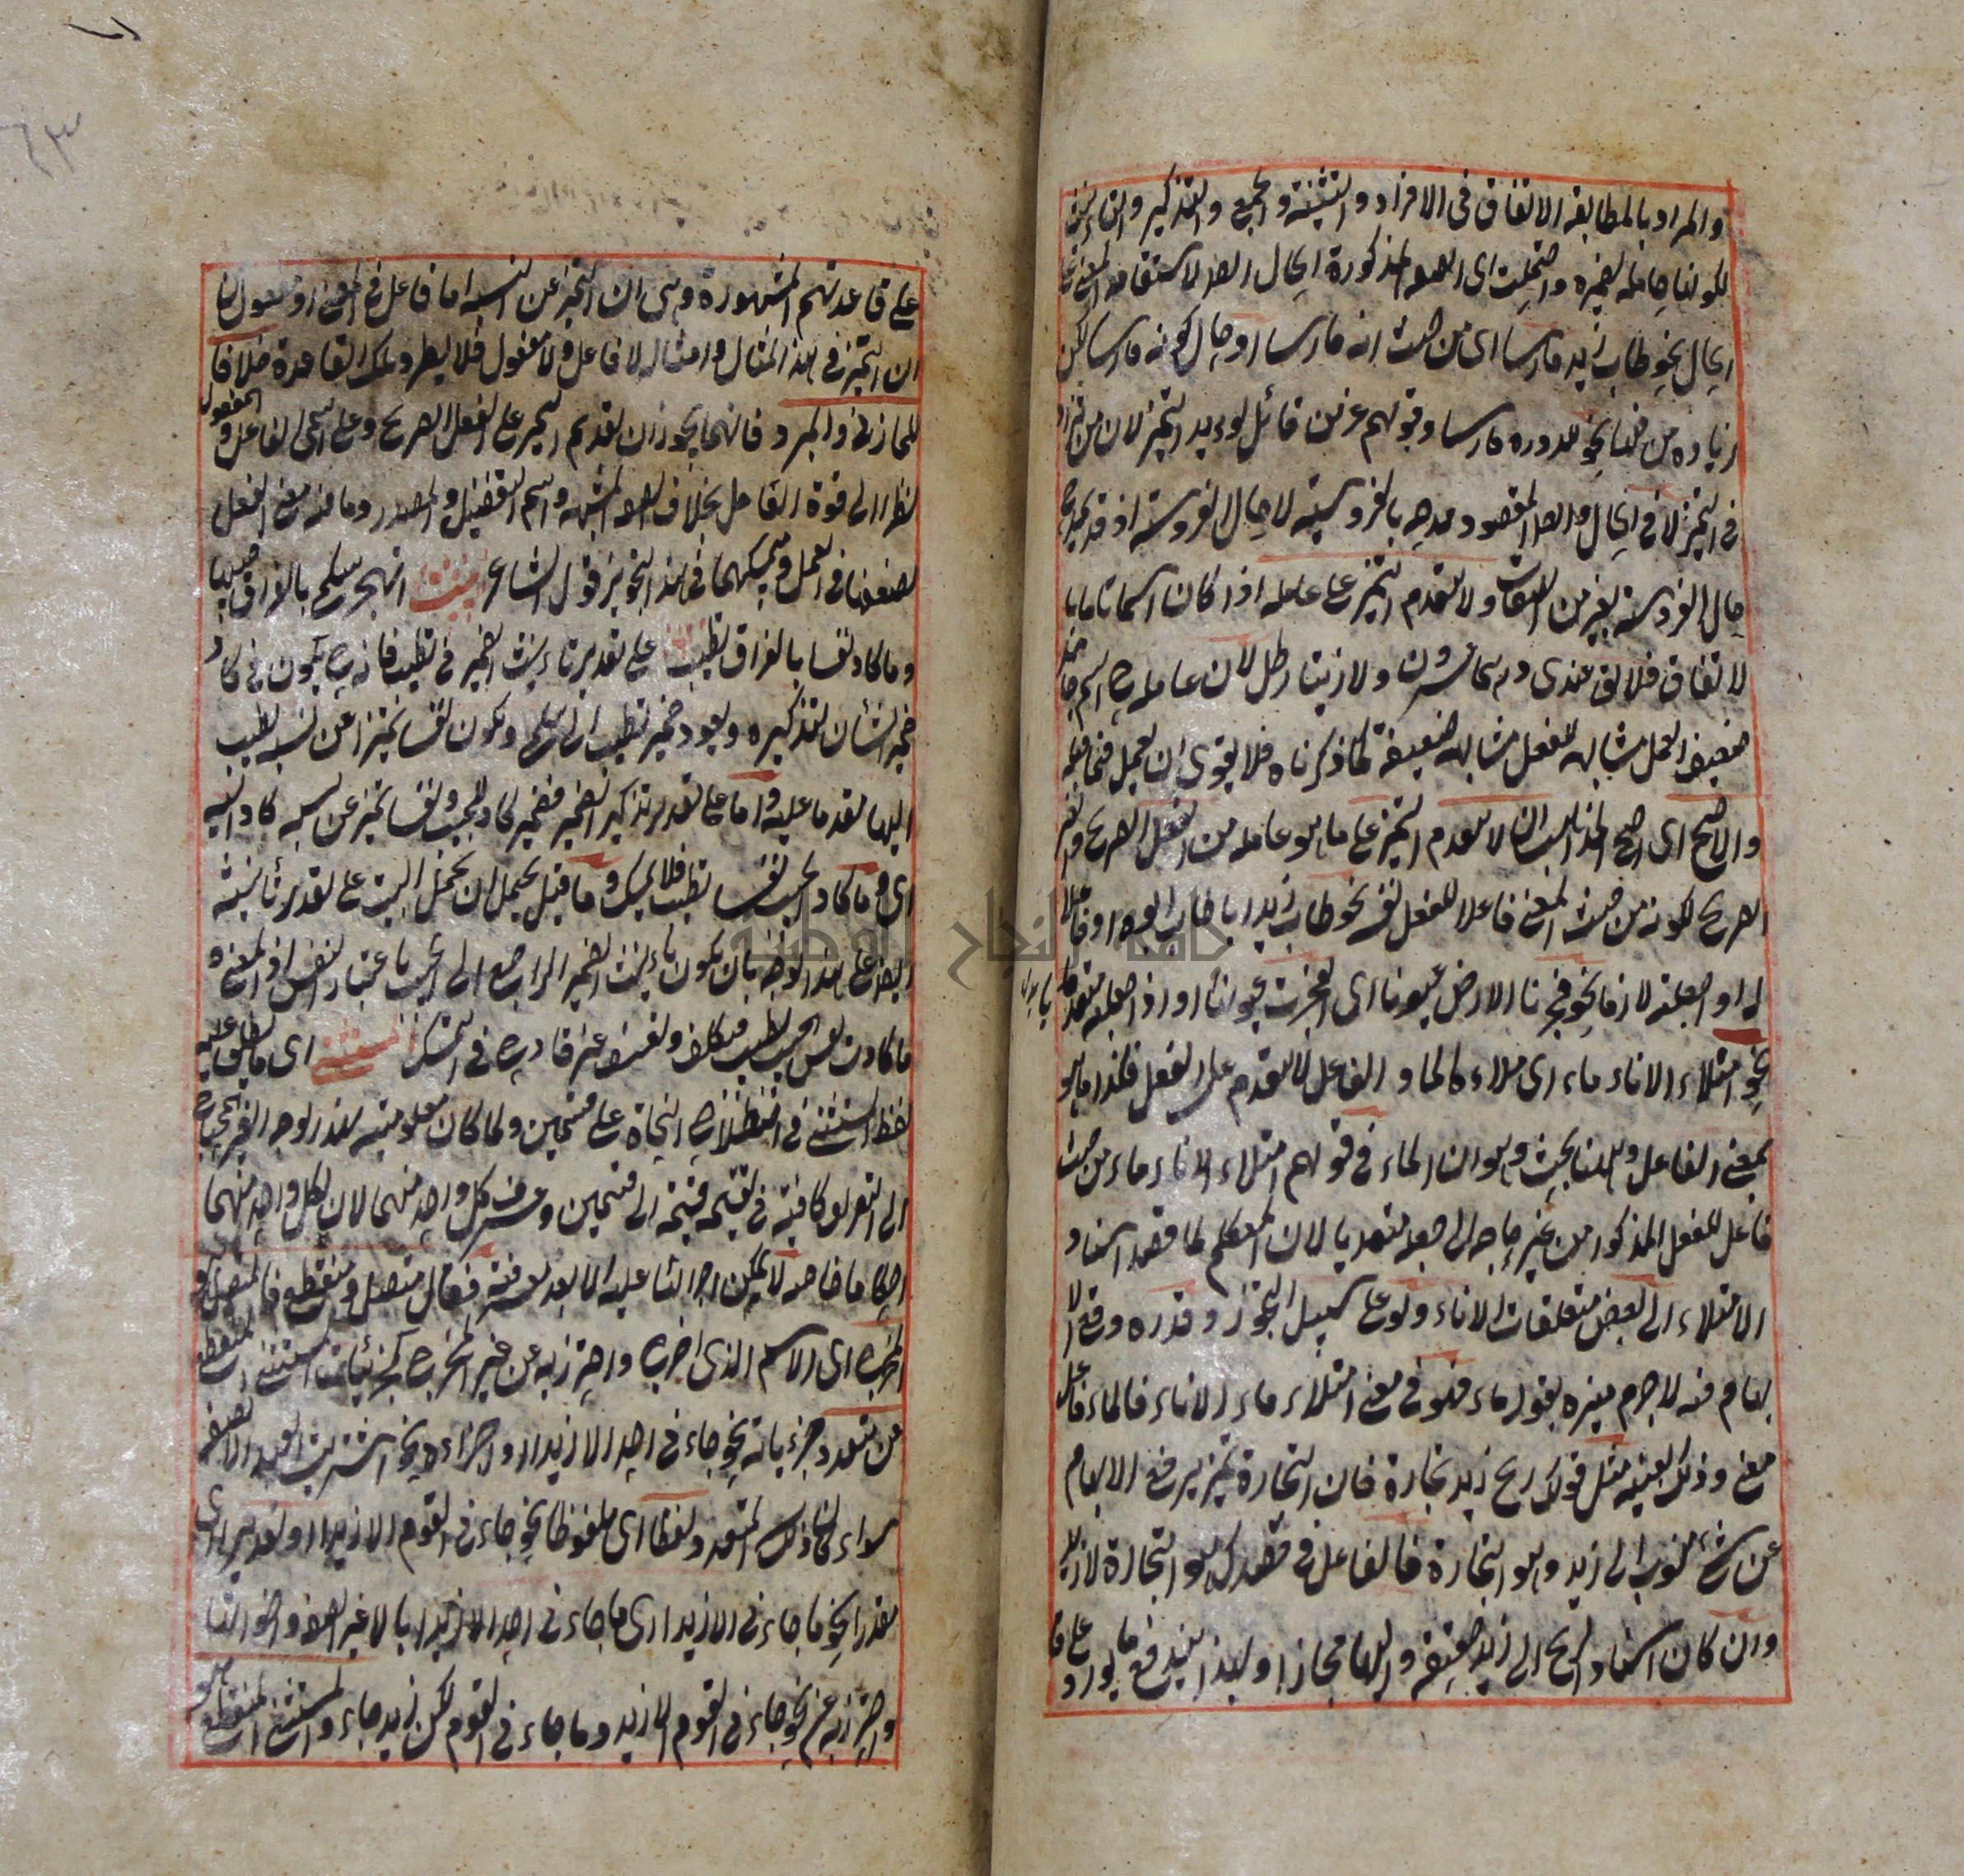 والمراد بالمطابقة الاتفاق فى الافراد والتثنية والجمع والتذكير والتانيث
لكونها حاملة لضميره واحتملت اى الصفة المذكورة الحال ايضا لاستقامة المعنى على
الحال نحو طاب زيد فارسا اى من حيث انه فارسا او حال كونه فارسا لكن
زيادة من فيها نحو لله دره فارسا وقولهم عز من قائل يؤيد التميز لان من تزاد
فى التميز لا فى الحال وايضا المقصود مدحه بالفروسية لا حال الفروسية اذ قد يمدح
حال الفروسية بغير من الصفات ولا يتقدم التميز على عامله اذا كان اسما تاما با
لاتفاق فلا يق عندى درهما عشرون ولا زيتا رطل لان عامله ح اسم جامد
ضعيف العمل مشابه للفعل مشابهة ضعيفة كما ذكرناه فلا يقوى ان يعمل فيما قبله
والاصح اى اصح المذاهب ان لا يتقدم التميز على ما هو عامله من الفعل الصريح وغير
الصريح لكونه من حيث المعنى فاعلا للفعل نفسه نحو طاب زيد ابا طاب ابوه او فاعلا
له اذا جعلته لازما نحو فجرنا الارض عيونا اى انفجرت عيونها او اذا جعلته متعديا
نحو امتلاء الاناء ماء اى ملاءه الماء والفاعل لا يتقدم على الفعل فكذا ما هو
بمعنى الفاعل وههنا بحث وهو ان الماء فى قولهم امتلاء الاناء ماء من حيث
فاعل للفعل المذكور من غير حاجة الى جعله متعديا لان المتكلم لما قصد اسناد
الامتلاء الى بعض متعلقات الاناء ولو على سبيل التجوز وقدره وقع الا
بهام فيه لا جرم ميزه بقوله ماء فهو فى معنى امتلاء ماء الاناء فالماء فاعل
معنى وذلك بعينه مثل قولك ربح زيد تجارة فان التجارة تميز يرفع الابهام
عن شئ منسوب الى زيد وهو التجارة فالفاعل فى قصدك هو التجارة لا زيد
وان كان اسناد الربح الى زيد حقيقة واليها مجازا وبهذا يندفع ما يورد على قا
على قاعدتهم المشهورة وهى ان التميز عن النسبة اما فاعل فى المعنى او مفعول
ان التميز فى هذا المثال وامثاله لا فاعل ولا مفعول فلا يطرد تلك القاعدة خلافا
للمازنى والمبرد فانهما يجوزان تقديم التميز على الفعل الصريح وعلى اسمى الفاعل والمفعول
نظرا الى قوة العامل بخلاف الصفة المشبهة واسم التفضيل والمصدر وما فيه معنى الفعل
لضعفها فى العمل ومتمسكهما فى هذا التجويز قول الشاعر اتهجر سلمى بالفراق حبيبها
وما كاد نفسا بالفراق تطيب على تقدير تانيث الضمير فى تطيب فانه ح يكون فى كاد
ضمير الشان لتذكيره ويعود ضمير تطيب الى سلمى ويكون نفسا تميزا عن نسبة تطيب
اليها تقدم عليه واما على تقدير تذكير الضمير فضمير كاد للحبيب ونفسا تميز عن نسبة كاد اليه
اى وما كاد الحبيب نفسا يطيب فلا تمسك وما قيل يحتمل ان يحمل البيت على تقدير تانيثه
ايضا على هذا الوجه بان يكون تانيث الضمير الراجع الى الحبيب باعتبار النفس اذ المعنى و
ما كادت نفس الحبيب تطيب فتكلف وتعسف غير قادح فى التمسك المستثنى اى ما يطلق عليه
لفظ المستثنى فى اصطلاح النحاة على قسمين ولما كان معلومية بهذا الوجه الغير المحتاج
الى التعريف كافية فى تقسيمه قسمه الى قسمين وعرف كل واحد منهما لان لكل واحد منهما
احكاما خاصة لا يمكن اجراؤها عليه الا بعد معرفته فقال متصل ومنقطع فالمتصل هو
المخرج اى الاسم الذى اخرج واحترز به عن غير المخرج كجزئيات المستثنى المنقطع
عن متعدد جزئياته نحو جاءنى احد الا زيدا او اجزاءه نحو اشتريت العبد الا نصفه
سواء كان ذلك المتعدد لفظا اى ملفوظا نحو جاءنى القوم الا زيدا او تقديرا اى
مقدرا نحو ما جاءنى الا زيد اى ما جاءنى احد الا زيدا بالا غير الصفة واخواتها
واحترز به عن نحو جاءنى القوم لا زيد وما جاءنى القوم لكن زيد جاء والمستثنى المنقطع